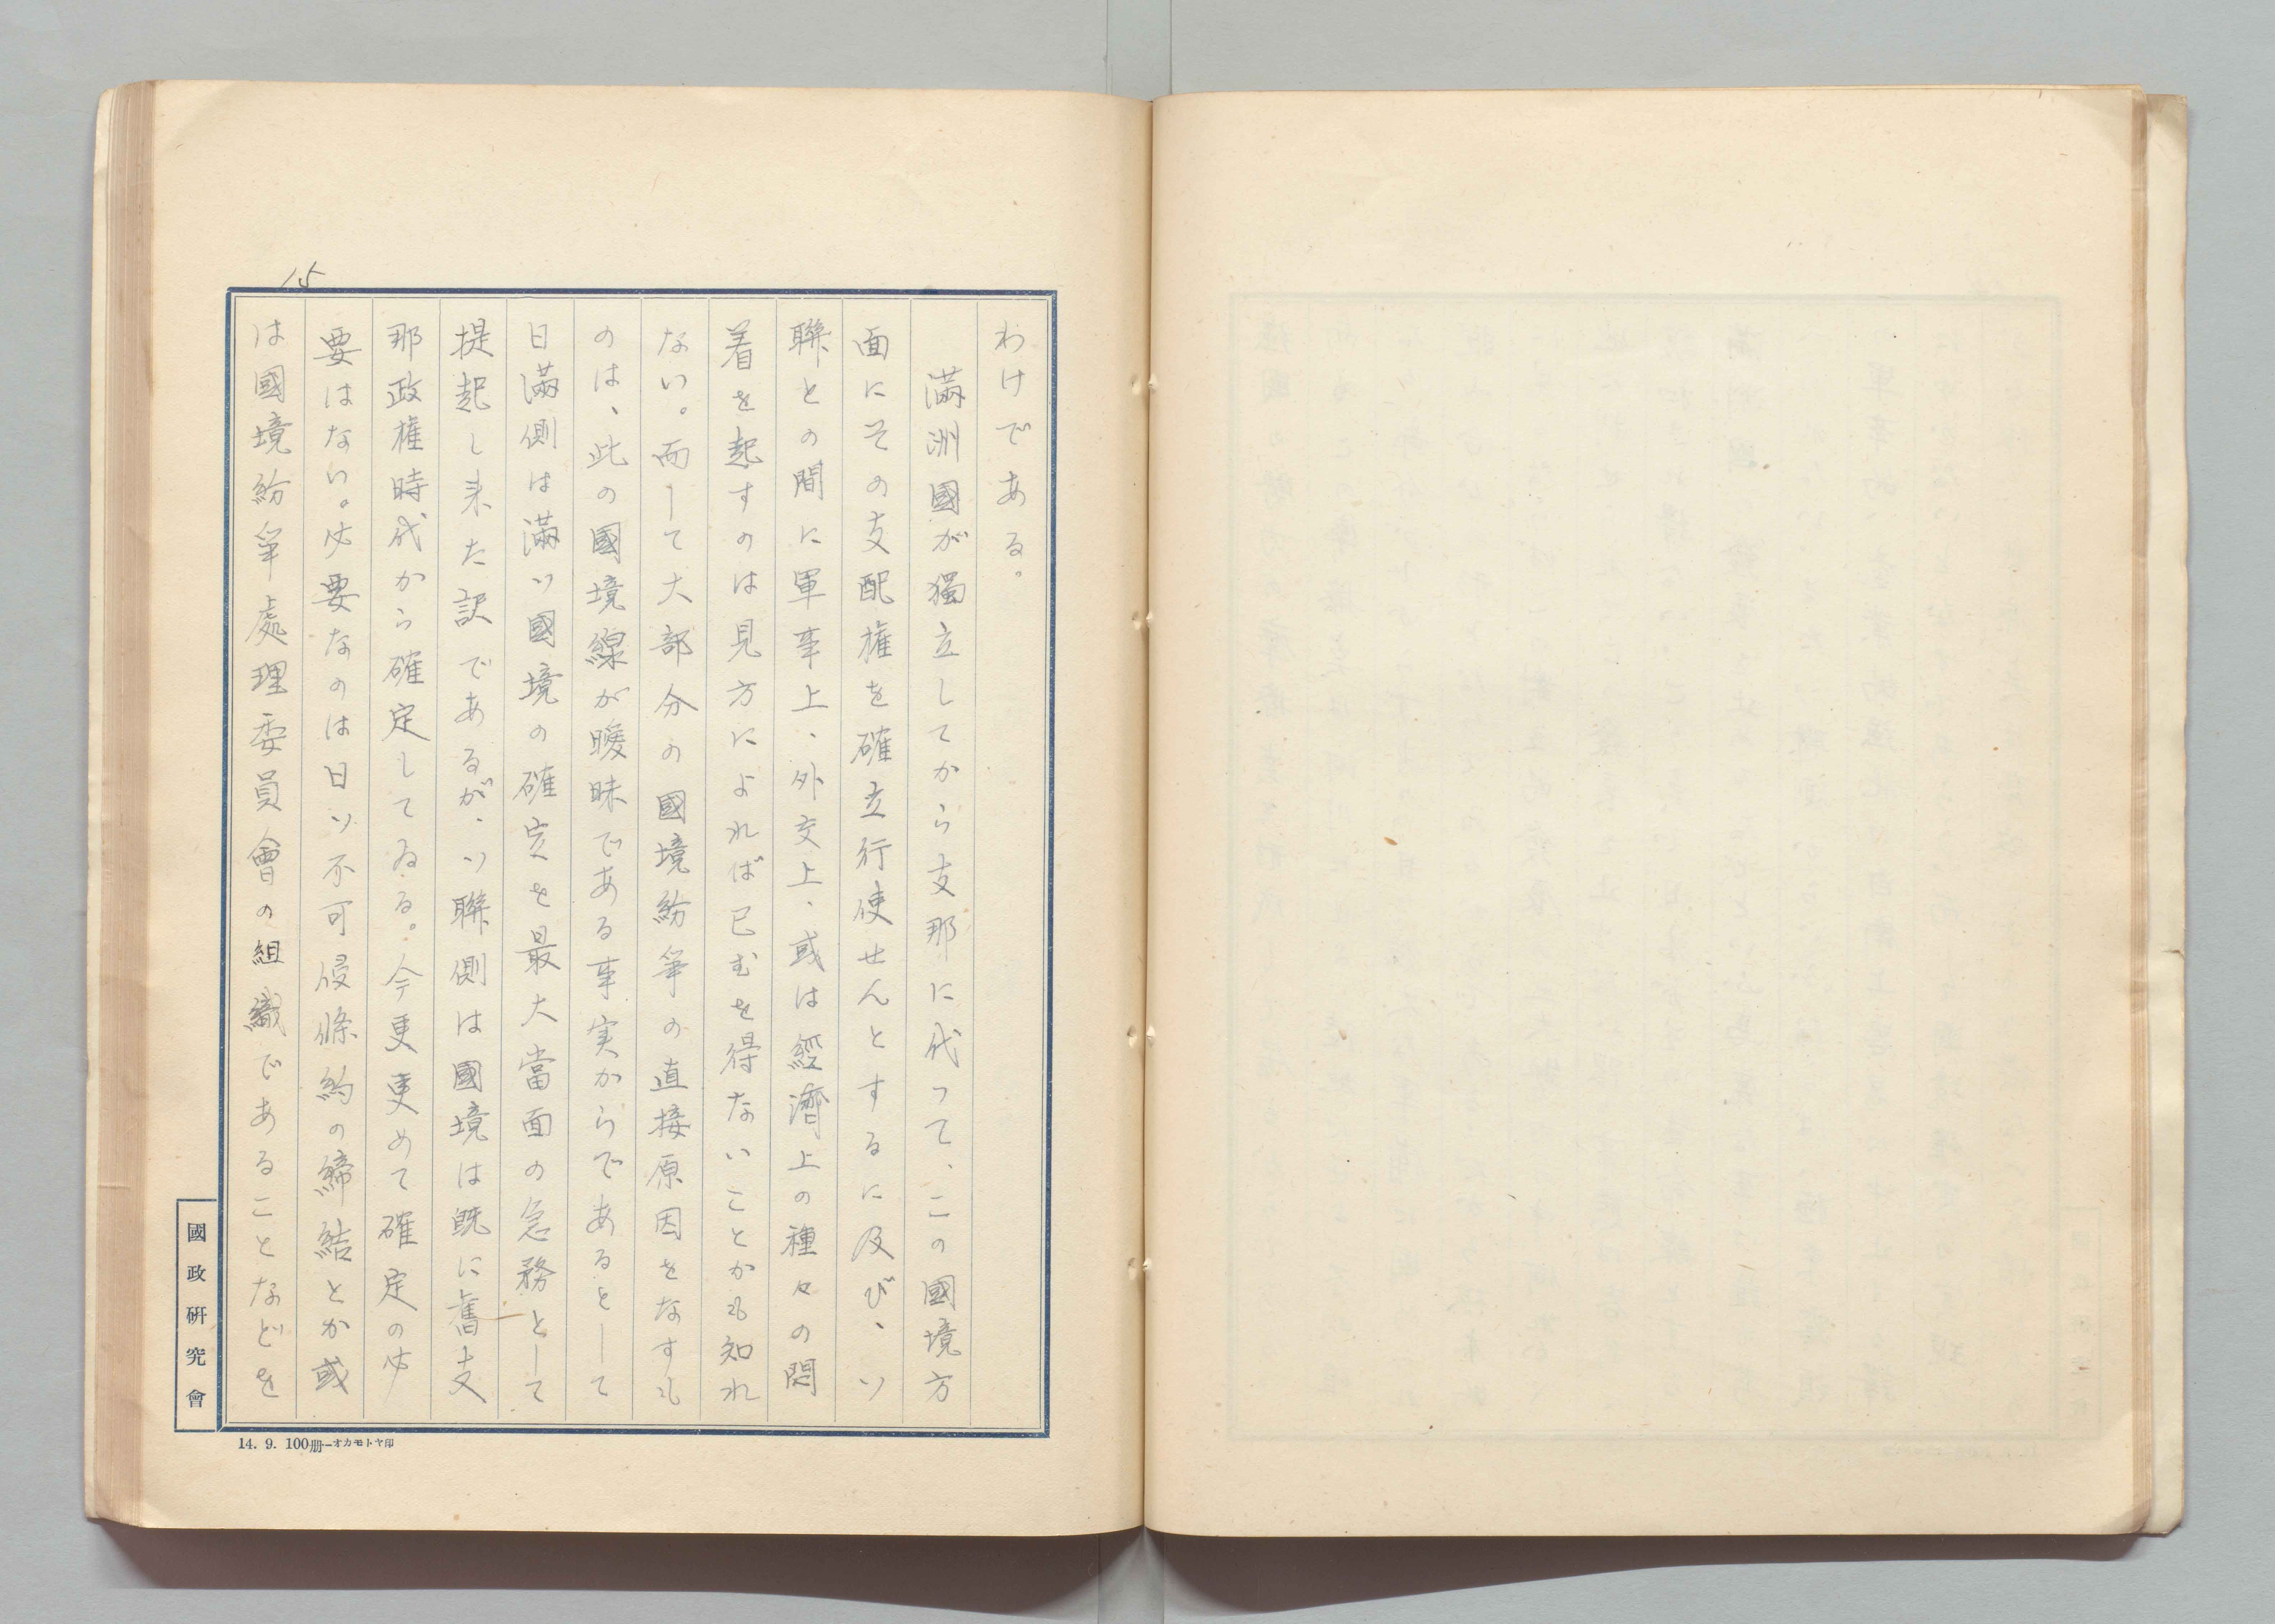 わけである。
満洲國が獨立してから支那に代って、この國境方
面にその支配権を確立行使せんとするに及び、ソ
聯との間に軍事上、外交上、或は經濟上の種々の悶
着を起すのは見方によれば已むを得ないことかも知れ
ない。而して大部分の國境紛爭の直接原因をなすも
のは、此の國境線が曖昧である事実からであるとして
日滿側は滿ソ國境の確定を最大當面の急務として
提起し来た訳であるが、ソ聯側は國境は既に舊支
那政権時代から確定してゐる。今更更めて確定の必
要はない。必要なのは日ソ不可侵條約の締結とか或
は國境紛爭處理委員會の組織であることなどを
15
國政硏究會
14. 9. 100册—オカモトヤ印